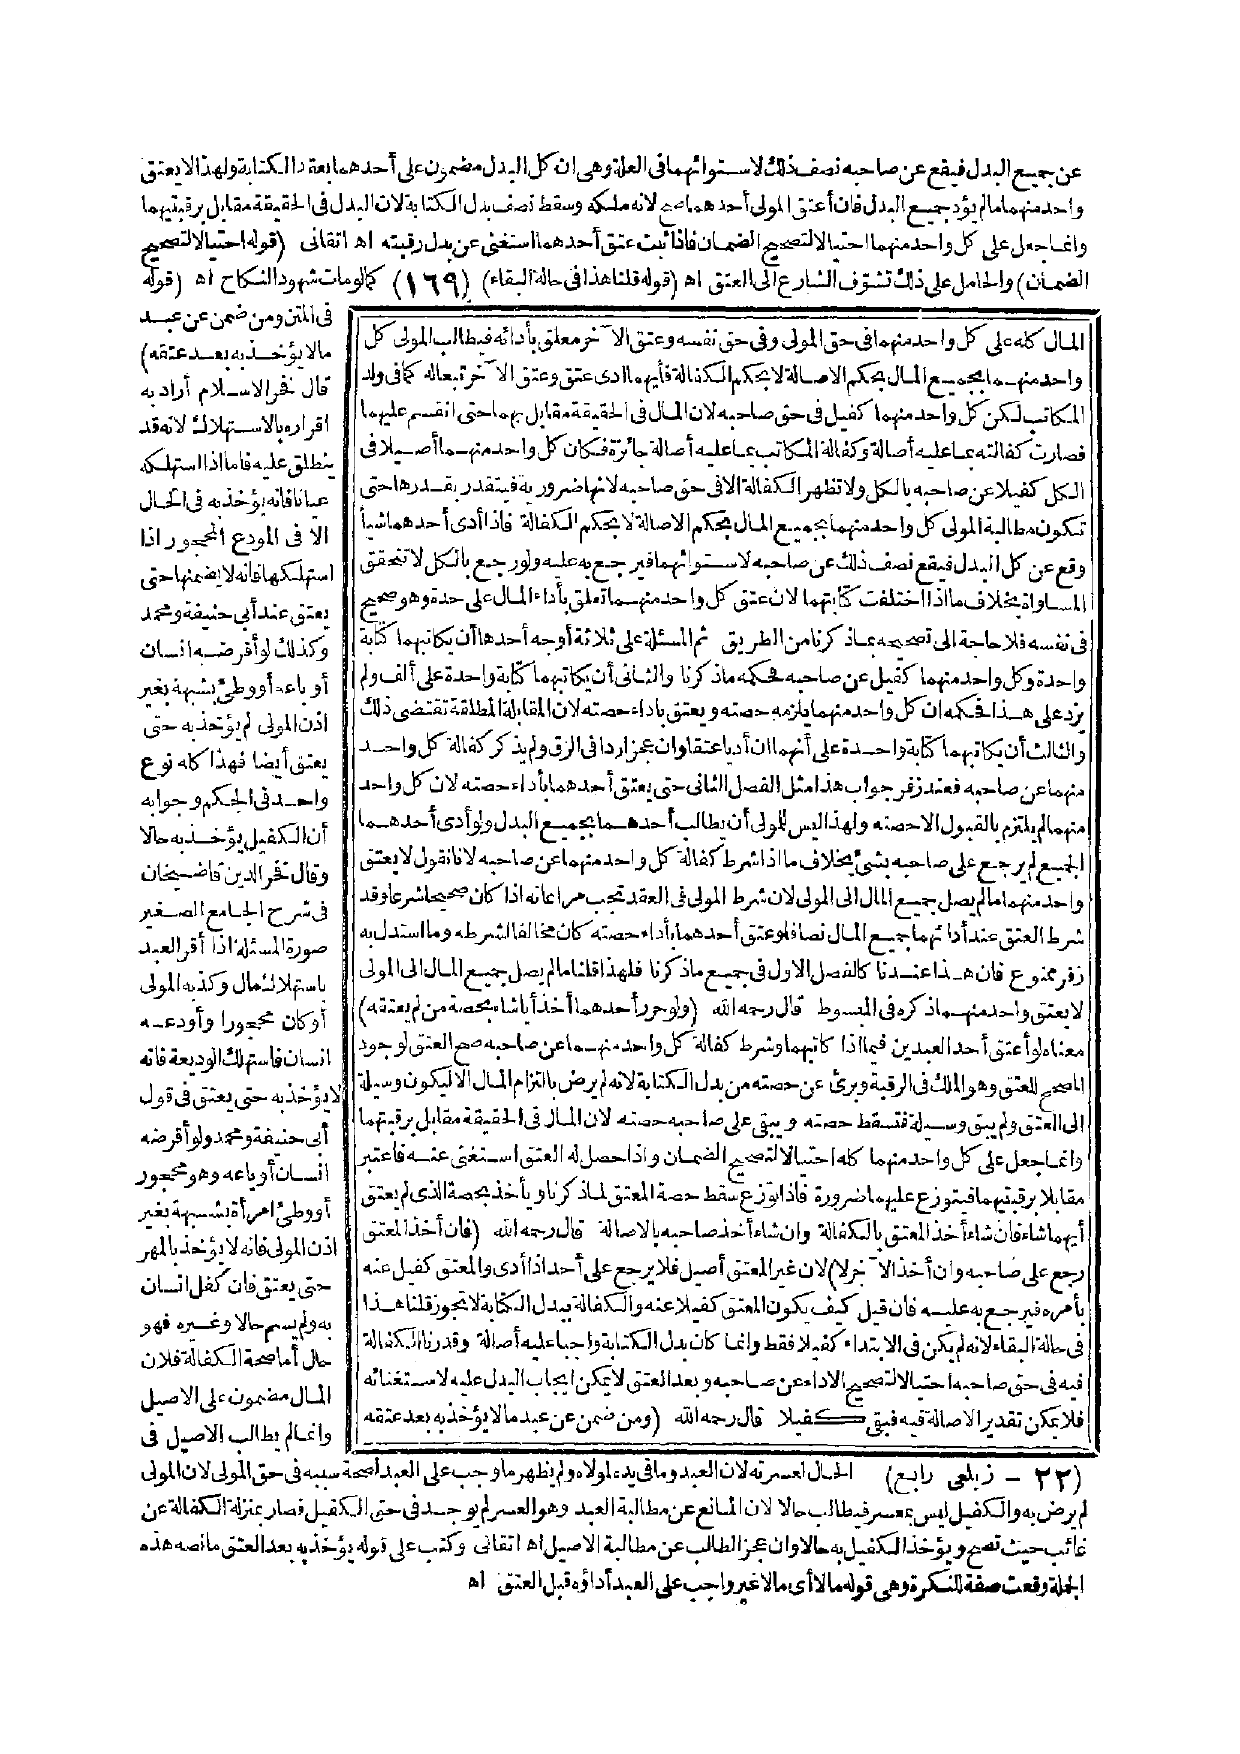 عن جميع البدل فيقع عن صاحبه نصف ذلك لاستوائهما فى العلة وهى ان كل البدل مضمون على أحدهما بعقد الكتابة ولهذا لا يعتق
واحد منهما ما لم يؤد جميع البدل فان أعتق المولى أحدهما صح لانه ملكه وسقط نصف بدل الكتابة لان البدل فى الحقيقة مقابل برقبتهما
وانما جعل على كل واحد منهما احتيالا لتصحيح الضمان فاذا ثبت عتق أحدهما استغنى عن بدل رقبته اه اتقانى (قوله احتيالا لتصحيح
الضمان) والحامل على ذلك تشوف الشارع الى العتق اه (قوله قلنا هذا فى حالة البقاء) (١٦٩) كما لو مات شهود النكاح اه (قوله
المال كله على كل واحد منهما فى حق المولى وفى حق نفسه وعتق الآخر معلق بأدائه فيطالب المولى كل
واحد منهما بجميع المال بحكم الاصالة لا بحكم الكفالة فأيهما ادى عتق وعتق الآخر تبعا له كما فى ولد
المكاتب لكن كل واحد منهما كفيل فى حق صاحبه لان المال فى الحقيقة مقابل بهما حتى انقسم عليهما
فصارت كفالته بما عليه أصالة وكفالة المكاتب بما عليه أصالة جائزة فكان كل واحد منهما أصيلا فى
الكل كفيلا عن صاحبه بالكل ولا تظهر الكفالة الا فى حق صاحبه لانها ضرورية فيتقدر بقدرها حتى
تكون مطالبة المولى كل واحد منهما بجميع المال بحكم الاصالة لا بحكم الكفالة فاذا أدى أحدهما شيأ
وقع عن كل البدل فيقع نصف ذلك عن صاحبه لاستوائهما فيرجع به عليه ولو رجع بالكل لا تتحقق
المساواة بخلاف ما اذا اختلفت كتابتهما لان عتق كل واحد منهما تعلق بأداء المال على حدة وهو صحيح
فى نفسه فلا حاجة الى تصحيحه بما ذكرنا من الطريق ثم المسئلة على ثلاثة أوجه أحدها أن يكاتبهما كتابة
واحدة وكل واحد منهما كفيل عن صاحبه فحكمه ما ذكرنا والثانى أن يكاتبهما كتابة واحدة على ألف ولم
يزد على هذا فحكمه ان كل واحد منهما يلزمه حصته ويعتق باداء حصته لان المقابلة المطلقة تقتضى ذلك
والثالث أن يكاتبهما كتابة واحدة على أنهما ان أديا عتقا وان عجزا ردا فى الرق ولم يذكر كفالة كل واحد
منهما عن صاحبه فعند زفر جواب هذا مثل الفصل الثانى حتى يعتق أحدهما بأداء حصته لان كل واحد
منهما لم يلتزم بالقبول الا حصته ولهذا ليس للمولى أن يطالب أحدهما بجميع البدل ولو أدى أحدهما
الجميع لم يرجع على صاحبه بشئ بخلاف ما اذا شرط كفالة كل واحد منهما عن صاحبه لانا نقول لا يعتق
واحد منهما ما لم يصل جميع المال الى المولى لان شرط المولى فى العقد تجب مراعاته اذا كان صحيحا شرعا وقد
شرط العتق عند أدائهما جميع المال نصا فلو عتق أحدهما باداء حصته كان مخالفا لشرطه وما استدل به
زفر ممنوع فان هذا عندنا كالفصل الاول فى جميع ما ذكرنا فلهذا قلنا ما لم يصل جميع المال الى المولى
لا يعتق واحد منهما ذكره فى المبسوط قال رحمه الله (ولو حرر أحدهما أخذ أيا شاء بحصة من لم يعتقه)
معناه لو أعتق أحد العبدين فيما اذا كاتبهما وشرط كفالة كل واحد منهما عن صاحبه صح العتق لوجود
المصحح للعتق وهو الملك فى الرقبة وبرئ عن حصته من بدل الكتابة لانه لم يرض بالتزام المال الا ليكون وسيلة
الى العتق ولم يبق وسيلة فتسقط حصته ويبقى على صاحبه حصته لان المال فى الحقيقة مقابل برقبتهما
وانما جعل على كل واحد منهما كله احتيالا لتصحيح الضمان واذا حصل له العتق استغنى عنه فاعتبر
مقابلا برقبتهما فيتوزع عليهما ضرورة فاذا توزع سقط حصة المعتق لما ذكرنا ويأخذ بحصة الذى لم يعتق
أيهما شاء فان شاء أخذ المعتق بالكفالة وان شاء أخذ صاحبه بالاصالة قال رحمه الله (فان أخذ المعتق
رجع على صاحبه وان أخذ الآخر لا) لان غير المعتق أصيل فلا يرجع على أحد اذا أدى والمعتق كفيل عنه
بأمره فيرجع به عليه فان قيل كيف يكون المعتق كفيلا عنه والكفالة ببدل الكتابة لا تجوز قلنا هذا
فى حالة البقاء لانه لم يكن فى الابتداء كفيلا فقط وانما كان بدل الكتابة واجبا عليه أصالة وقدرنا الكفالة
فيه فى حق صاحبه احتيالا لتصحيح الاداء عن صاحبه وبعد العتق لا يمكن ايجاب البدل عليه لاستغنائه
فلا يمكن تقدير الاصالة فيه فبقى كفيلا قال رحمه الله (ومن ضمن عن عبد مالا يؤخذ به بعد عتقه
فى المتن ومن ضمن عن عبد
مالا يؤخذ به بعد عتقه)
قال فخر الاسلام أراد به
اقراره بالاستهلاك لانه قد
ينطلق عليه فاما اذا استهلكه
عيانا فانه يؤخذ به فى الحال
الا فى المودع المحجور اذا
استهلكها فانه لا يضمنها حتى
يعتق عند أبى حنيفة ومحمد
وكذلك لو أقرضه انسان
أو باعه أو وطئ بشبهة بغير
اذن المولى لم يؤخذ به حتى
يعتق أيضا فهذا كله نوع
واحد فى الحكم وجوابه
أن الكفيل يؤخذ به حالا
وقال فخر الدين قاضيخان
فى شرح الجامع الصغير
صورة المسئلة اذا أقر العبد
باستهلاك مال وكذبه المولى
أو كان محجورا وأودعه
انسان فاستهلك الوديعة فانه
لا يؤخذ به حتى يعتق فى قول
أبى حنيفة ومحمد ولو أقرضه
انسان أو باعه وهو محجور
أو وطئ امرأة بشبهة بغير
اذن المولى فانه لا يؤخذ بالمهر
حتى يعتق فان كفل انسان
به ولم يسم حالا وغيره فهو
حال أما صحة الكفالة فلان
المال مضمون على الاصيل
وانما لم يطالب الاصيل فى
(٢٢ - زيلعى رابع) الحال لعسرته لان العبد وما فى يده لمولاه ولم يظهر ما وجب على العبد لصحة سببه فى حق المولى لان المولى
لم يرض به والكفيل ليس بمعسر فيطالب حالا لان المانع عن مطالبة العبد وهو العسر لم يوجد فى حق الكفيل فصار بمنزلة الكفالة عن
غائب حيث تصح ويؤخذ الكفيل به حالا وان عجز الطالب عن مطالبة الاصيل اه اتقانى وكتب على قوله يؤخذ به بعد العتق ما نصه هذه
الجملة وقعت صفة للنكرة وهى قوله مالا أى مالا غير واجب على العبد أداؤه قبل العتق اه